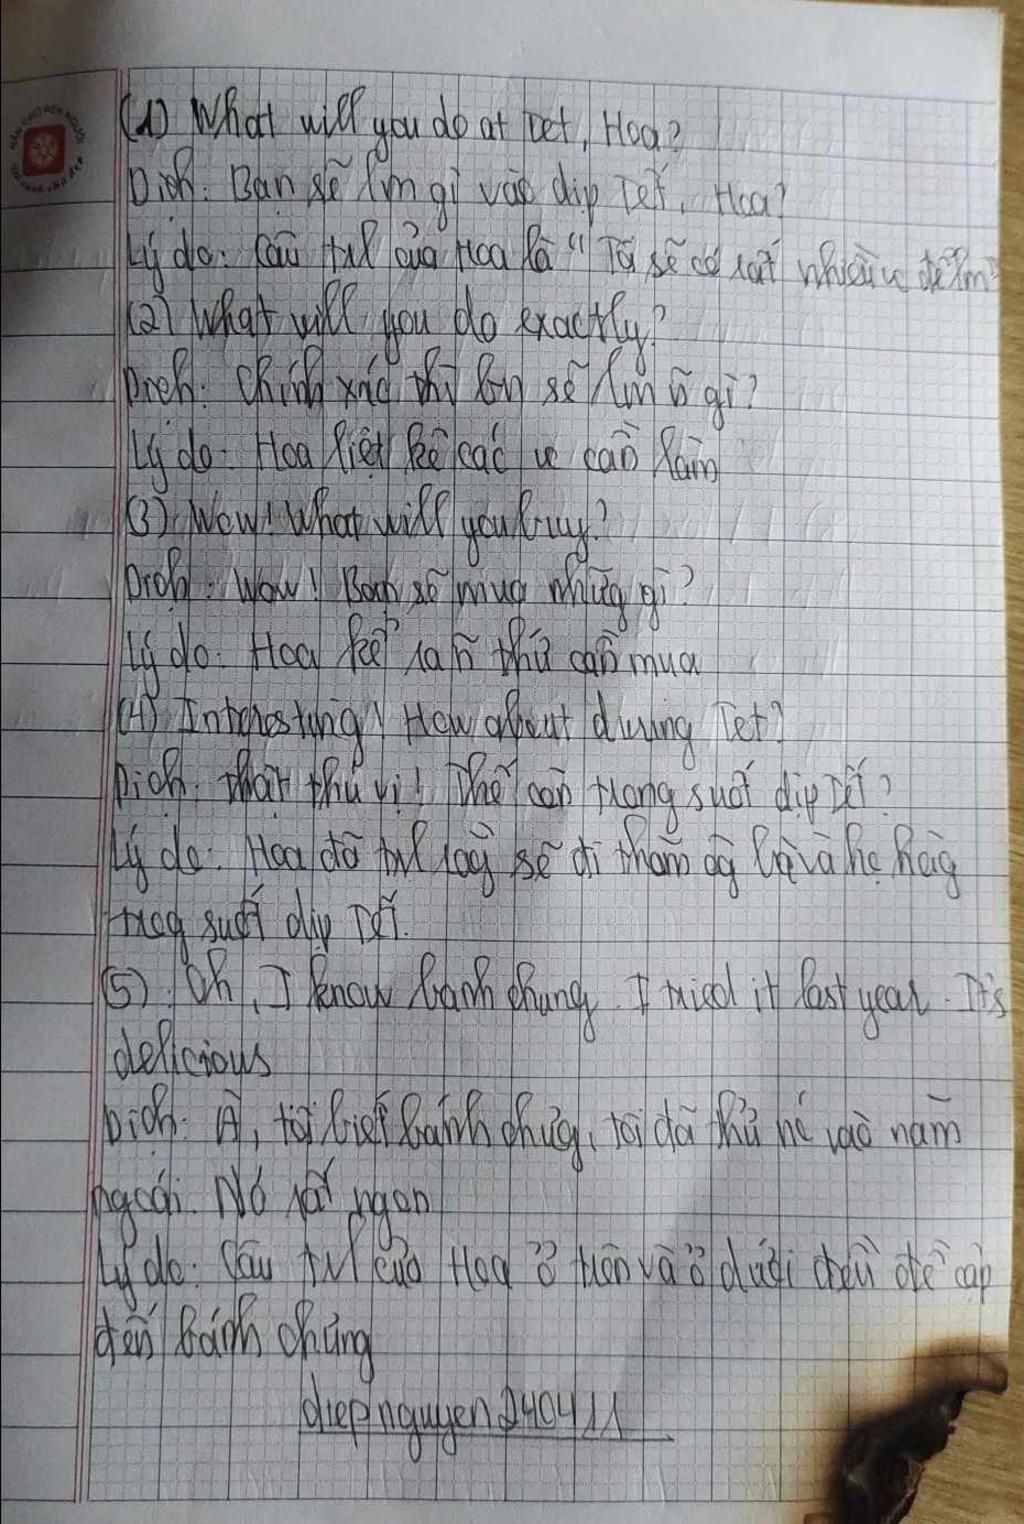 (1) What will you do at Tet, Hoa?
Dịch: Bạn sẽ lm gì vào dịp Tết, Hoa?
Lý do: Câu trl của Hoa là "Tớ sẽ có rất nhiều vc để lm"
(2) What will you do exactly?
Dịch: Chính xác thì bn sẽ lm gì?
Lý do: Hoa liệt kê các vc cần làm
(3) Wow! What will you buy?
Dịch: Wow! Bạn sẽ mua những gì?
Lý do: Hoa kể thứ cần mua
(4) Interesting! How about during Tet?
Dịch: thật thú vị! Thế còn trong suốt dịp Tết?
Lý do: Hoa đã trl sẽ đi thăm và họ
suốt dịp Tết.
(5) Oh, I know banh chung. I tried it last year. It's
delicious
Dịch: À, tôi biết bánh chưng, tôi đã thử nó vào năm
ngoái. Nó rất ngon
Lý do: Câu trl của Hoa ở trên và ở dưới đều đề cập
đến bánh chưng
diepnguyen240411